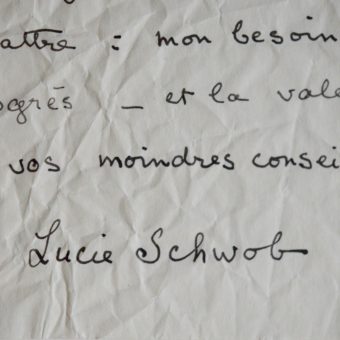 attre : mon besoin
ogrès _ et la vale
vos moindres consei
Lucie Schwob